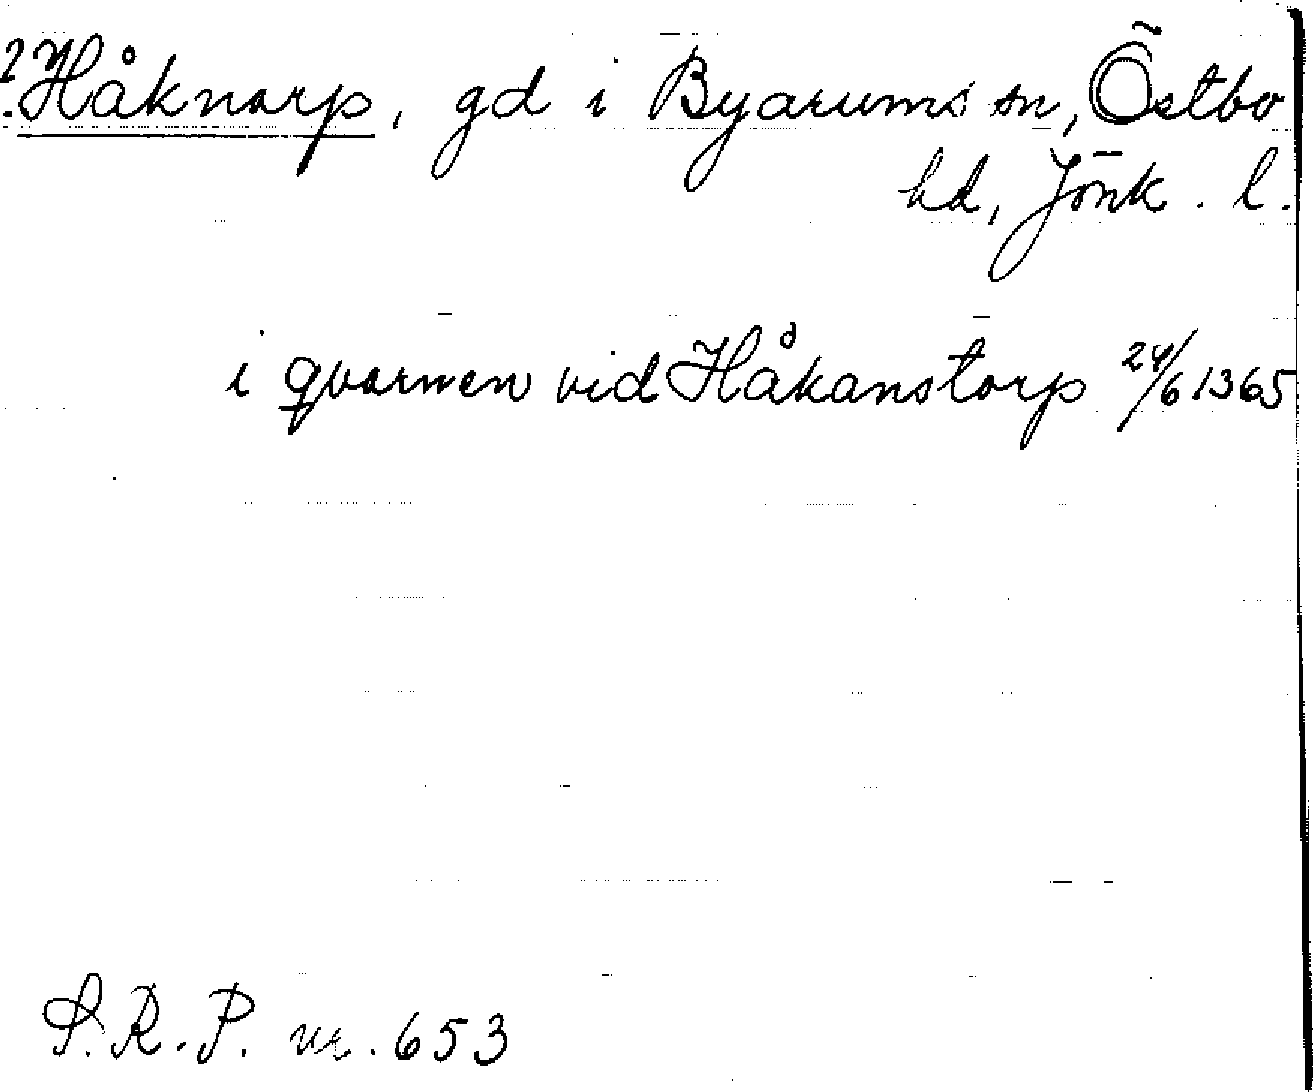 ? Håknarp, gd i Byarums sn, Östbo
hd, Jönk. l.
i qvarnen vid Håkanstorp 24/6 1365
S.R.P. nr. 653